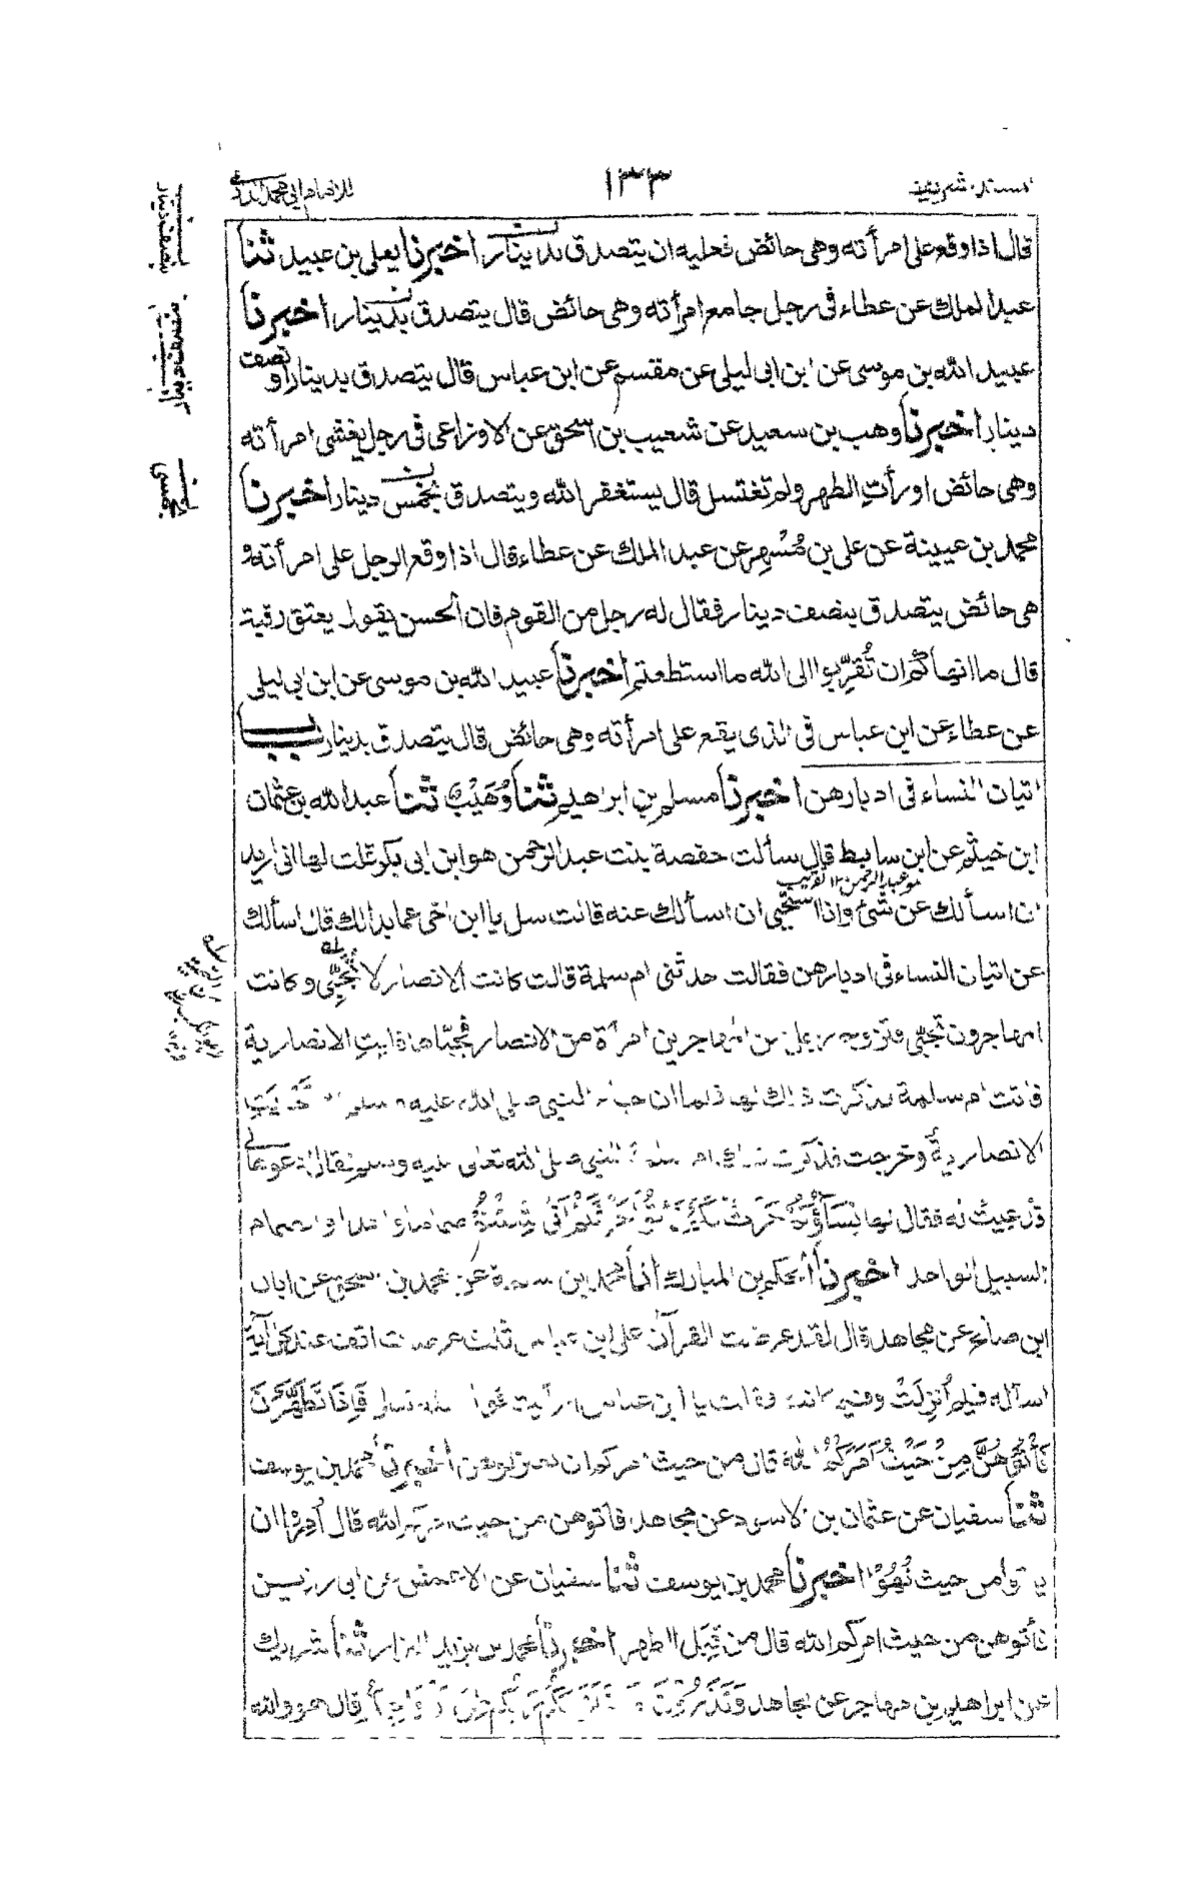 مسند شريف
١٣٣
للامام ابي محمد الدارمي
قال اذا وقع على امرأته وهى حائض فعليه ان يتصدق بدينار اخبرنا يعلى بن عبيد ثنا
عبد الملك عن عطاء فى رجل جامع امرأته وهى حائض قال يتصدق بدينار اخبرنا
عبيد الله بن موسى عن ابن ابى ليلى عن مقسم عن ابن عباس قال يتصدق بدينار او نصف
دينار اخبرنا وهب بن سعيد عن شعيب بن اسحق عن الاوزاعى فى رجل يغشى امرأته
وهى حائض او رأت الطهر ولم تغتسل قال يستغفر الله ويتصدق بخمس دينار اخبرنا
محمد بن عيينة عن على بن مُسْهِر عن عبد الملك عن عطاء قال اذا وقع الرجل على امرأته و
هى حائض يتصدق بنصف دينار فقال له رجل من القوم فان الحسن يقول يعتق رقبة
قال ما انهاكم ان تُقَرِّبوا الى الله ما استطعتم اخبرنا عبيد الله بن موسى عن ابن ابى ليلى
عن عطاء عن ابن عباس فى الذى يقع على امرأته وهى حائض قال يتصدق بدينار باب
اتيان النساء فى ادبارهن اخبرنا مسلم بن ابراهيم ثنا وُهَيْب ثنا عبد الله بن عثمان
ابن خيثم عن ابن سابط قال سألت حفصة بنت عبد الرحمن هو ابن ابى بكر قلت لها انى اريد
هو عبد الرحمن ١٢ تقريب
ان اسألك عن شئ وانا استحيى ان اسألك عنه قالت سل يا ابن اخى عما بدا لك قال اسألك
عن اتيان النساء فى ادبارهن فقالت حدثتنى ام سلمة قالت كانت الانصار لا تُجَبِّى وكانت
المهاجرون تجبى فتزوج رجل من المهاجرين امرأة من الانصار فجبّاها فابت الانصارية
فاتت ام سلمة فذكرت ذلك لها فلما ان جاء النبى صلى الله عليه وسلم
الانصارية وخرجت فذكرت ذلك ام سلمة للنبى صلى الله تعالى عليه وسلم فقال ادعوها لى
فدعيت له فقال لها نِسَاؤُكُمْ حَرْثٌ لَكُمْ فَأْتُوا حَرْثَكُمْ أَنَّى شِئْتُمْ صماما واحدا والصمام
السبيل الواحد اخبرنا الحكم بن المبارك انا محمد بن سلمة عن محمد بن اسحق عن ابان
ابن صالح عن مجاهد قال لقد عرضت القرآن على ابن عباس ثلث عرضات اقف عند كل آية
اسأله فيم أُنزِلَتْ وفيم كانت فقلت يا ابن عباس ارأيت قول الله تعالى فَإِذَا تَطَهَّرْنَ
فَأْتُوهُنَّ مِنْ حَيْثُ أَمَرَكُمُ اللهُ قال من حيث امركم ان تعتزلوهن اخبرنا محمد بن يوسف
ثنا سفيان عن عثمان بن الاسود عن مجاهد فاتوهن من حيث امركم الله قال أُمِرُوا ان
يأتوا من حيث نُهُوْا اخبرنا محمد بن يوسف ثنا سفيان عن الاعمش عن ابى رزين
فأتوهن من حيث امركم الله قال من قِبَل الطهر اخبرنا محمد بن يزيد البزار ثنا شريك
عن ابراهيم بن مهاجر عن مجاهد وَتَذَرُوْنَ مَا خَلَقَ لَكُمْ رَبُّكُمْ مِنْ أَزْوَاجِكُمْ قال هو والله
بنصف دينار
بخمسى